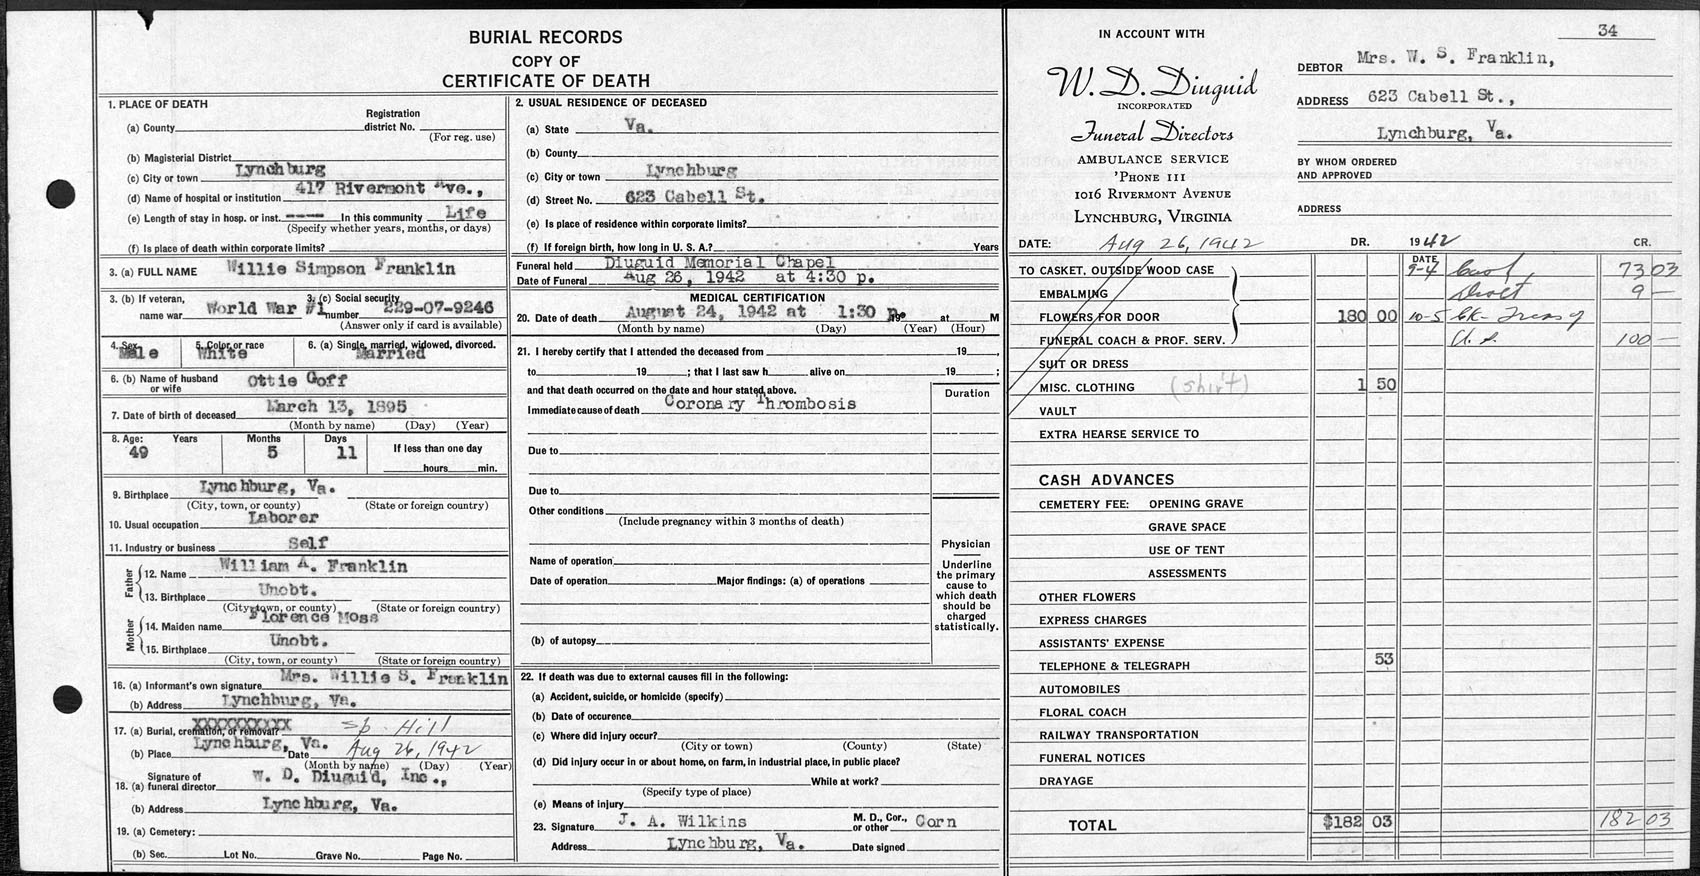 BURIAL RECORDS
COPY OF
CERTIFICATE OF DEATH
1. PLACE OF DEATH
Registration
(a) County district No.
(For reg. use)
(b) Magisterial District
(c) City or town Lynchburg
(d) Name of hospital or institution 417 Rivermont Ave.,
(e) Length of stay in hosp. or inst. ---- In this community Life
(Specify whether years, months, or days)
(f) Is place of death within corporate limits?
3. (a) FULL NAME Willie Simpson Franklin
3. (b) If veteran, name war World War #1 3. (c) Social security number 229-07-9246
(Answer only if card is available)
4. Sex Male 5. Color or race White 6. (a) Single, married, widowed, divorced. Married
6. (b) Name of husband or wife Ottie Goff
7. Date of birth of deceased March 13, 1895
(Month by name) (Day) (Year)
8. Age: Years Months Days If less than one day
49 5 11
hours min.
9. Birthplace Lynchburg, Va.
(City, town, or county) (State or foreign country)
10. Usual occupation Laborer
11. Industry or business Self
Father
12. Name William A. Franklin
13. Birthplace Unobt.
(City, town, or county) (State or foreign country)
Mother
14. Maiden name Florence Moss
15. Birthplace Unobt.
(City, town, or county) (State or foreign country)
16. (a) Informant's own signature Mrs. Willie S. Franklin
(b) Address Lynchburg, Va.
17. (a) Burial, cremation, or removal? XXXXXXXXXX Sp. Hill
(b) Place Lynchburg, Va. Date Aug 26, 1942
(Month by name) (Day) (Year)
18. (a) Signature of funeral director W. D. Diuguid, Inc.,
(b) Address Lynchburg, Va.
19. (a) Cemetery:
(b) Sec. Lot No. Grave No. Page No.
2. USUAL RESIDENCE OF DECEASED
(a) State Va.
(b) County
(c) City or town Lynchburg
(d) Street No. 623 Cabell St.
(e) Is place of residence within corporate limits?
(f) If foreign birth, how long in U. S. A.? Years
Funeral held Diuguid Memorial Chapel
Date of Funeral Aug 26, 1942 at 4:30 p.
MEDICAL CERTIFICATION
20. Date of death August 24, 1942 at 1:30 p. 19 at M
(Month by name) (Day) (Year) (Hour)
21. I hereby certify that I attended the deceased from 19 ,
to 19 ; that I last saw h alive on 19 ;
and that death occurred on the date and hour stated above.
Duration
Immediate cause of death Coronary Thrombosis
Due to
Due to
Other conditions
(Include pregnancy within 3 months of death)
Name of operation
Date of operation Major findings: (a) of operations
(b) of autopsy
Physician
Underline
the primary
cause to
which death
should be
charged
statistically.
22. If death was due to external causes fill in the following:
(a) Accident, suicide, or homicide (specify)
(b) Date of occurence
(c) Where did injury occur?
(City or town) (County) (State)
(d) Did injury occur in or about home, on farm, in industrial place, in public place?
While at work?
(Specify type of place)
(e) Means of injury
23. Signature J. A. Wilkins M. D., Cor., or other Corn
Address Lynchburg, Va. Date signed
34
IN ACCOUNT WITH
W. D. Diuguid
INCORPORATED
Funeral Directors
AMBULANCE SERVICE
'PHONE 111
1016 RIVERMONT AVENUE
LYNCHBURG, VIRGINIA
DEBTOR Mrs. W. S. Franklin,
ADDRESS 623 Cabell St.,
Lynchburg, Va.
BY WHOM ORDERED
AND APPROVED
ADDRESS
DATE: Aug 26, 1942 DR. 1942 CR.
DATE
TO CASKET, OUTSIDE WOOD CASE 9-4 Cash, 73 03
EMBALMING Disct 9 —
FLOWERS FOR DOOR 180 00 10-5 Ck- Treas of
FUNERAL COACH & PROF. SERV. U. S. 100 —
SUIT OR DRESS
MISC. CLOTHING (shirt) 1 50
VAULT
EXTRA HEARSE SERVICE TO
CASH ADVANCES
CEMETERY FEE: OPENING GRAVE
GRAVE SPACE
USE OF TENT
ASSESSMENTS
OTHER FLOWERS
EXPRESS CHARGES
ASSISTANTS' EXPENSE
TELEPHONE & TELEGRAPH 53
AUTOMOBILES
FLORAL COACH
RAILWAY TRANSPORTATION
FUNERAL NOTICES
DRAYAGE
TOTAL $182 03 182 03